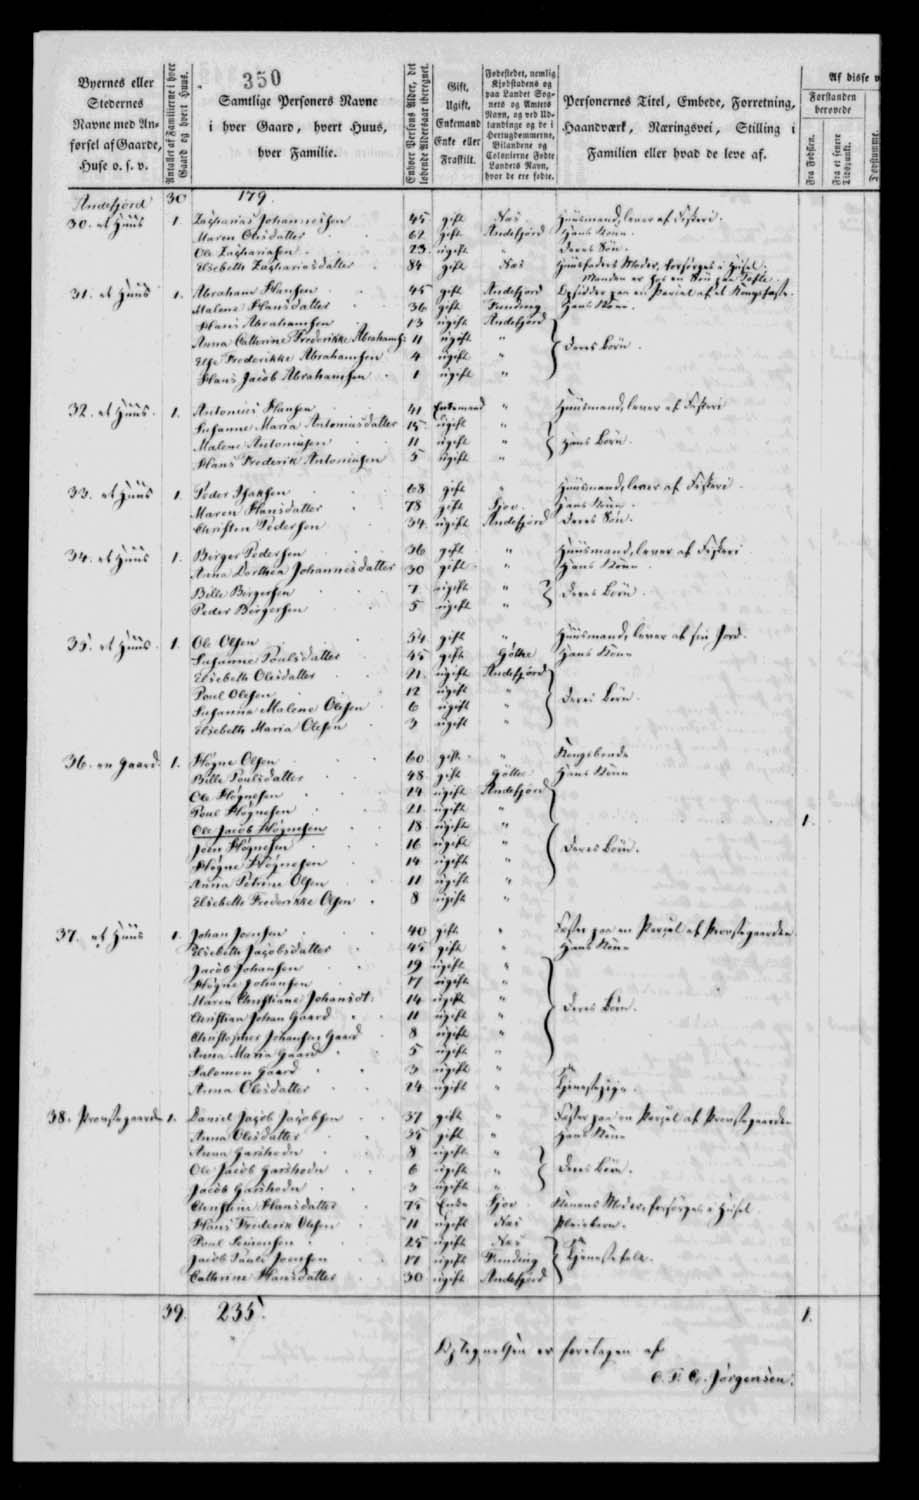 350
Byernes eller Stedernes Navne med Anførsel af Gaarde, Huse o. s. v.
Antallet af Familierne i hver Gaard og hvert Huus.
Samtlige Personers Navne i hver Gaard, hvert Huus, hver Familie.
Enhver Persons Alder, det løbende Aldersaar iberegnet.
Gift, Ugift, Enkemand Enke eller Fraskilt.
Fødestedet, nemlig Kjøbstadens og paa Landet Sognets og Amtets Navn, og ved Udlændinge og de i Hertugdømmerne, Bilandene og Colonierne Fødte Landets Navn, hvor de ere fødte.
Personernes Titel, Embede, Forretning, Haandværk, Næringsvei, Stilling i Familien eller hvad de leve af.
Af disse v
Forstanden berovede
Fra Fødselen.
Fra et senere Tidspunkt.
Døvstumme.
Andefjord 30 179.
30. et Huus 1. Zacharias Johannessen 45 gift Næs Huusmand, lever af Fiskeri.
Maren Olesdatter 62 gift Andefjord Hans Kone.
Ole Zachariasen 23 ugift " Deres Søn.
Elsebeth Zachariasdatter 84 gift Næs Huusfaders Moder, forsørges i Huset. Manden er hos en Søn paa
31. et Huus 1. Abraham Hansen 45 gift Andefjord paa en Parcel af et Kongsfæste.
Malene Hansdatter 36 gift Funding Hans Kone.
Hans Abrahamsen 13 ugift Andefjord
Anna Cathrine Frederikke Abrahams. 11 ugift " Deres Børn.
Else Frederikke Abrahamsen 4 ugift "
Hans Jacob Abrahamsen 1 ugift "
32. et Huus. 1. Antonius Hansen 41 Enkemand " Huusmand, lever af Fiskeri
Susanne Maria Antoniusdatter 15 ugift "
Malene Antoniusen 11 ugift " Hans Børn.
Hans Frederik Antoniusen 5 ugift "
33. et Huus 1. Peder Isaksen 68 gift " Huusmand, lever af Fiskeri.
Maren Hansdatter 78 gift Gjov. Hans Kone.
Christen Pedersen 34 ugift Andefjord Deres Søn.
34. et Huus 1. Berger Pedersen 36 gift " Huusmand, lever af Fiskeri
Anna Dorthea Johannesdatter 30 gift " Hans Kone.
Bille Bergersen 7 ugift " Deres Børn.
Peder Bergersen 5 ugift "
35. et Huus 1. Ole Olsen 54 gift " Huusmand, lever af sin Jord.
Susanne Poulsdatter 45 gift Gøthe Hans Kone
Elsebeth Olesdatter 21 ugift Andefjord
Poul Olesen 12 ugift " Deres Børn.
Susanna Malene Olesen 6 ugift "
Elsebeth Maria Olesen 3 ugift "
36. en Gaard. 1. Høgne Olsen 60 gift " Kongsbonde
Bille Poulsdatter 48 gift Gøthe Hans Kone
Ole Høgnesen 24 ugift Andefjord
Poul Høgnesen 21 ugift "
Ole Jacob Høgnesen 18 ugift " 1.
Joen Høgnesen 16 ugift " Deres Børn.
Høgne Høgnesen 14 ugift "
Anna Petrine Olsen 11 ugift "
Elsebeth Frederikke Olsen 8 ugift "
37. et Huus 1. Johan Joensen 40 gift " Fæster paa en Parcel af Provstegaarden
Elsebeth Jacobsdatter 45 gift " Hans Kone
Jacob Johansen 19 ugift "
Høgne Johansen 17 ugift "
Maren Christiane Johansdt. 14 ugift "
Christian Johan Gaard 11 ugift " Deres Børn.
Christopher Johansen Gaard 8 ugift "
Anna Maria Gaard 5 ugift "
Salomon Gaard 3 ugift "
Anna Olesdatter 24 ugift " Tjenestepige
38. Provstegaarden 1. Daniel Jacob Jacobsen 37 gift " Fæster paa en Parcel af Provstegaarden
Anna Olesdatter 35 gift " Hans Kone
Anna Garihodn 8 ugift "
Ole Jacob Garihodn 6 ugift " Deres Børn.
Jacob Garihodn 3 ugift "
Christine Hansdatter 75 Enke Gjov Konens Moder, forsørges i Huset
Hans Frederik Olesen 11 ugift Næs Pleiebarn.
Poul Simonsen 25 ugift Næs
Jacob Pauli Joensen 17 ugift Funding Tjenestefolk.
Cathrine Hansdatter 30 ugift Andefjord
39. 235. 1.
Optegnelsen er foretagen af
C. F. C. Jørgensen.